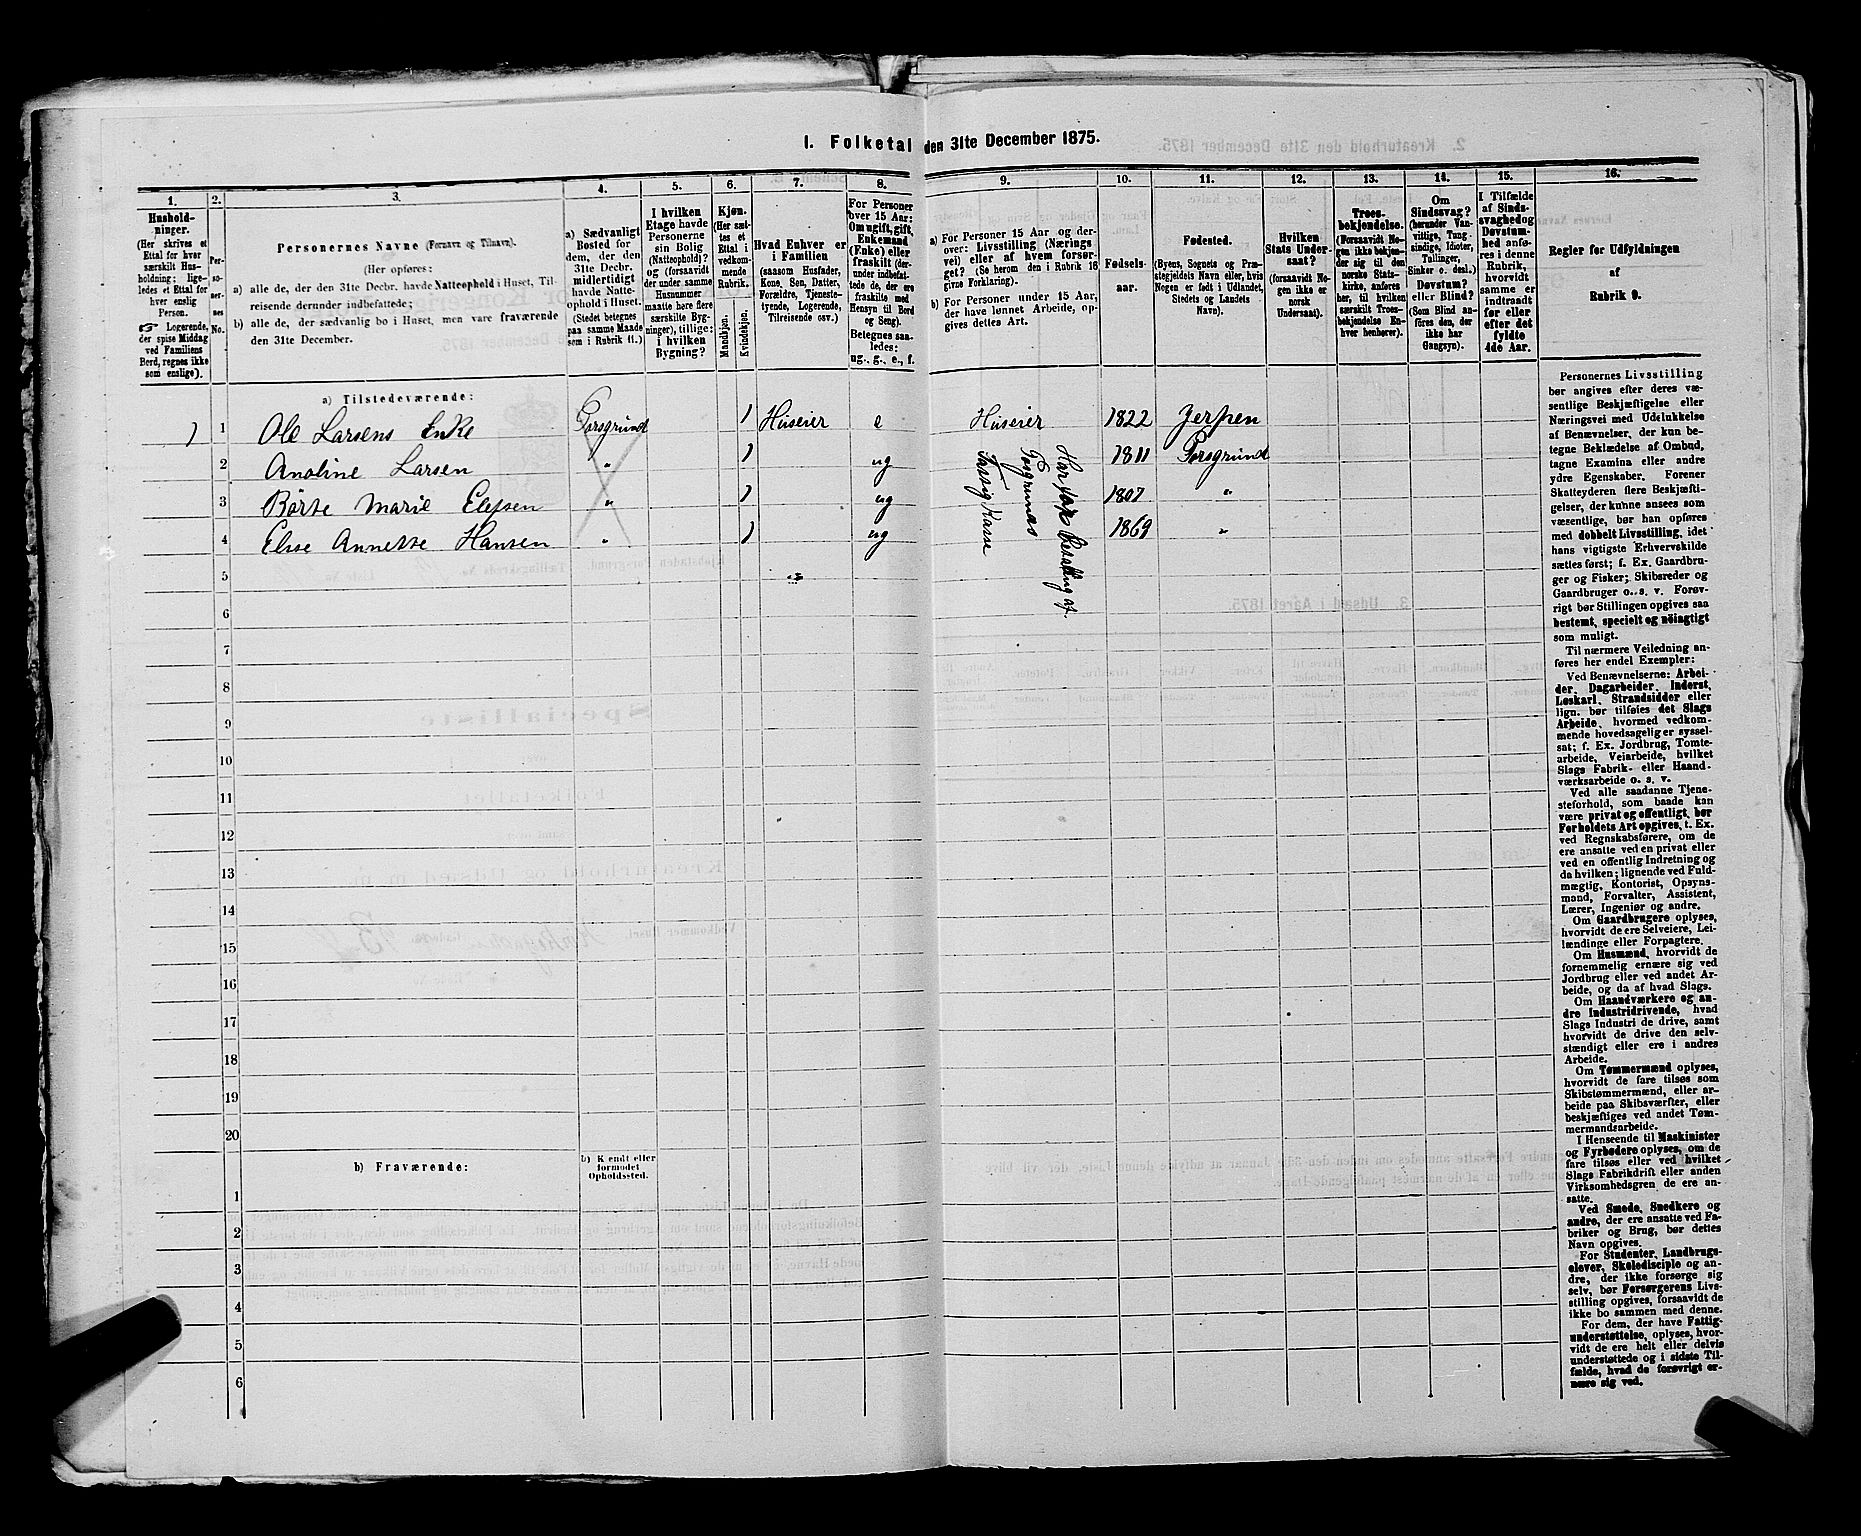 1. Folketal den 31te December 1875.
1.
Hushold-
ninger.
(Her skrives et
Ettal for hver
særskilt Hus-
holdning; lige-
ledes et Ettal for
hver enslig
Person.
☞ Logerende,
der spise Middag
ved Familiens
Bord, regnes ikke
som enslige).
2.
Per-
so-
ner-
nes
No.
3.
Personernes Navne (Fornavn og Tilnavn).
(Her opføres:
a) alle de, der den 31te Decbr. havde Natteophold i Huset, Til-
reisende derunder indbefattede;
b) alle de, der sædvanlig bo i Huset, men vare fraværende
den 31te December.
4.
a) Sædvanligt
Bosted for
dem, der den
31te Decbr.
midlertidigt
havde Natte-
ophold i Huset.
(Stedet betegnes
paa samme Maade
som i Rubrik 11.)
5.
I hvilken
Etage havde
Personerne
sin Bolig
(Natteophold)?
og (forsaavidt
der under samme
Husnummer
maatte høre flere
særskilte Byg-
ninger), tillige:
i hvilken
Bygning?
6.
Kjøn.
(Her sæt-
tes et
Ettal i
vedkom-
mende
Rubrik.
Mandkjøn.
Kvindekjøn.
7.
Hvad Enhver er
i Familien
(saasom Husfader,
Kone, Søn, Datter,
Forældre, Tjeneste-
tyende, Logerende,
Tilreisende osv.)
8.
For Personer
over 15 Aar:
Om ugift, gift,
Enkemand
(Enke) eller
fraskilt (der-
under indbefat-
tede de, der ere
fraskilte med
Hensyn til Bord
og Seng).
Betegnes saa-
ledes:
ug., g., e., f.
9.
a) For Personer 15 Aar og der-
over: Livsstilling (Nærings
vei) eller af hvem forsør-
get? (Se herom den i Rubrik 16
givne Forklaring).
b) For Personer under 15 Aar,
der have lønnet Arbeide, op-
gives dettes Art.
10.
Fødsels-
aar.
11.
Fødested.
(Byens, Sognets og Præ-
stegjeldets Navn eller, hvis
Nogen er født i Udlandet,
Stedets og Landets
Navn).
12.
Hvilken
Stats Under-
saat?
(forsaavidt No-
gen ikke er
norsk
Undersaat).
13.
Troes-
bekjendelse.
(Forsaavidt No-
gen ikke bekjen-
der sig til den
norske Stats-
kirke, anføres
her, til hvilken
særskilt Troes-
bekjendelse En-
hver henhører).
14.
Om
Sindssvag?
(herunder Van-
vittige, Tung-
sindige, Idioter,
Tullinger,
Sinker o. desl.)
Døvstum?
eller Blind?
(Som Blind an-
føres den, der
ikke har
Gangsyn).
15.
I Tilfælde
af Sinds-
svaghed og
Døvstum-
hed anfø-
res i denne
Rubrik,
hvorvidt
samme er
indtraadt
før eller
efter det
fyldte
4de Aar.
16.
Regler for Udfyldningen
af
Rubrik 9.
a) Tilstedeværende:
1 1 Ole Larsens Enke Porsgrund 1 Huseier e Huseier 1822 Jerpen
2 Anoline Larsen " 1 ug 1811 Porsgrund
3 Børte Marie Elefsen " 1 ug 1807 "
4 Elise Annette Hansen " 1 ug 1869 "
Har for Betalling af
Posgrunds
Fatig Kasse
5
6
7
8
9
10
11
12
13
14
15
16
17
18
19
20
b) Fraværende:
b) Kjendt eller
formodet
Opholdssted.
1
2
3
4
5
6
Personernes Livsstilling
bør angives efter deres væ-
sentlige Beskjæftigelse eller
Næringsvei med Udelukkelse
af Benævnelser, der kun be-
tegne Beklædelse af Ombud,
tagne Examina eller andre
ydre Egenskaber. Forener
Skatteyderen flere Beskjæfti-
gelser, der kunne ansees som
væsentlige, bør han opføres
med dobbelt Livsstilling, idet
hans vigtigste Erhvervskilde
sættes først; f. Ex. Gaardbru-
ger og Fisker; Skibsreder og
Gaardbruger o. s. v. Forøv-
rigt bør Stillingen opgives saa
bestemt, specielt og nøiagtigt
som muligt.
Til nærmere Veiledning an-
føres her endel Exempler:
Ved Benævnelserne: Arbei-
der, Dagarbeider, Inderst,
Løskarl, Strandsidder eller
lign. bør tilføies det Slags
Arbeide, hvormed vedkom-
mende hovedsagelig er syssel-
sat; f. Ex. Jordbrug, Tomte-
arbeide, Veiarbeide, hvilket
Slags Fabrik- eller Haand-
værksarbeide o. s. v.
Ved alle saadanne Tjene-
steforhold, som baade kan
være privat og offentligt, bør
Forholdets Art opgives, t. Ex.
ved Regnskabsførere, om de
ere ansatte ved en privat eller
ved en offentlig Indretning og
da hvilken; lignende ved Fuld-
mægtig, Kontorist, Opsyns-
mand, Forvalter, Assistent,
Lærer, Ingeniør og andre.
Om Gaardbrugere oplyses,
hvorvidt de ere Selveiere, Lei-
lændinge eller Forpagtere.
Om Husmænd, hvorvidt de
fornemmelig ernære sig ved
Jordbrug eller ved andet Ar-
beide, og da af hvad Slags.
Om Haandværkere og an-
dre Industridrivende, hvad
Slags Industri de drive, samt
hvorvidt de drive den selv-
stændigt eller ere i andres
Arbeide.
Om Tømmermænd oplyses,
hvorvidt de fare tilsøs som
Skibstømmermænd, eller ar-
beide paa Skibsværfter, eller
beskjæftiges ved andet Tøm-
mermandsarbeide.
I Henseende til Maskinister
og Fyrbødere oplyses, om de
fare tilsøs eller ved hvilket
Slags Fabrikdrift eller anden
Virksomhedsgren de ere an-
satte.
Ved Smede, Snedkere og
andre, der ere ansatte ved Fa-
briker og Brug, bør dettes
Navn opgives.
For Studenter, Landbrugs-
elever, Skoledisciple og an-
dre, der ikke forsørge sig
selv, bør Forsørgerens Livs-
stilling opgives, forsaavidt de
ikke bo sammen med denne.
For dem, der have Fattig-
understøttelse, oplyses, hvor-
vidt de ere helt eller delvis
understøttede og i sidste Til-
fælde, hvad de forøvrigt er-
nære sig ved.